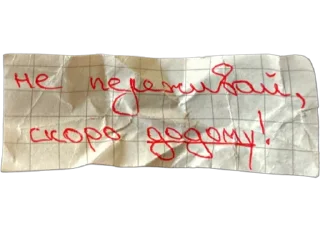 не переживай,
скоро додому!